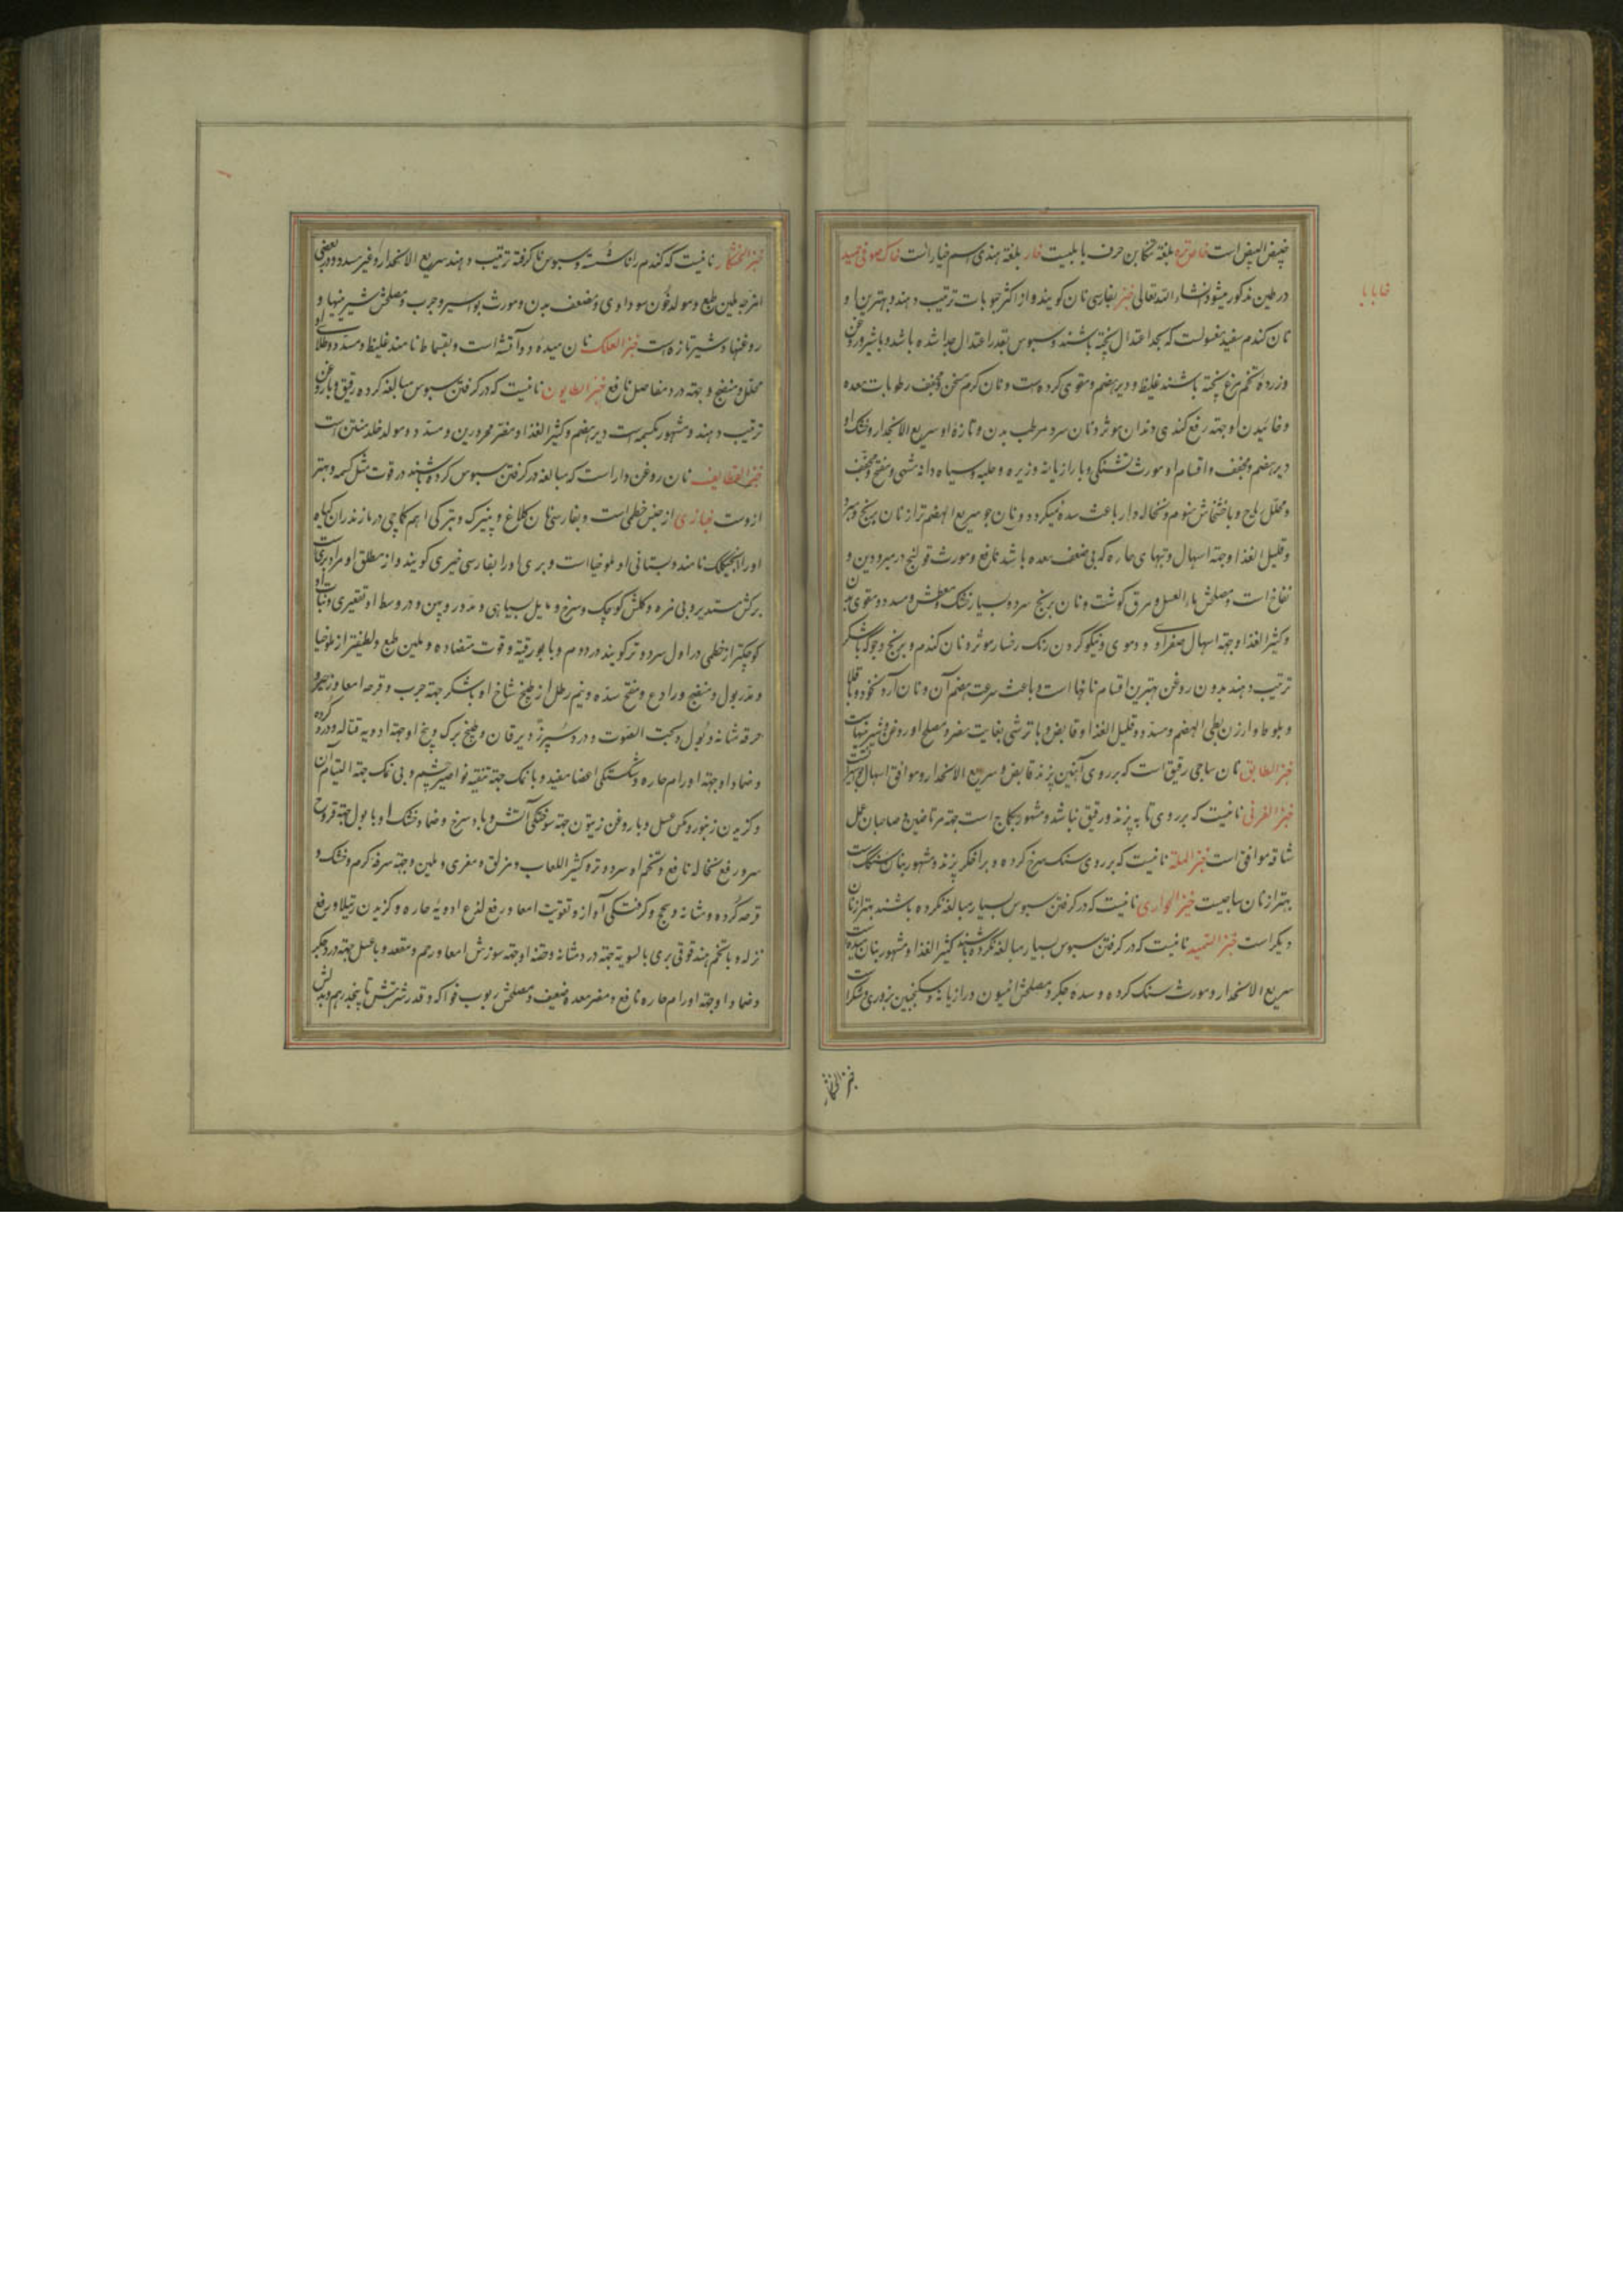 است خاص‌تره بلغة تنکابن حرف بابلیست خار بلغة هندی اسم خیار است خاک صوفی حمید
در طین مذکور میشود انشاء الله تعالی خبز بفارسی نان کویند و از اکثر حبوبات ترتیب دهند و بهترین او
نان کندم سفید مغسولست که بحد اعتدال پخته باشند و سبوس بقدر اعتدال جدا شده باشد و با شیر و روغن
و زرده تخم مرغ پخته باشند غلیظ و دیرهضم و مقوی کرده است و نان کرم مسخن و مجفف رطوبات معده
و خائیدن او جهة رفع کندی دندان موثر و نان سرد مرطب بدن و تازه او سریع الانحدار و خشک او
دیرهضم و مجفف و اقسام او مورث تشنگی و با رازیانه و زیره و حلبه و سیاه دانه مشهی و مفتح و مجفف
و محلل ریاح و با خشخاش منوم و نخاله دار باعث سده نمیکردد و نان جو سریع الهضم تر از نان برنج و سرد
و قلیل الغذا و جهة اسهال و تبهای حاره که بی ضعف معده باشد نافع و مورث قولنج در مبرودین و
نفاخ است و مصلحش ماء العسل و مرق کوشت و نان برنج سرد و بسیار خشک و معطش و مسدد و مقوی بدن
و کثیر الغذا و جهة اسهال صفراوی و دموی و نیکو کردن رنک رخسار موثر و نان کندم و برنج و جو که با شکر
ترتیب دهند بدون روغن بهترین اقسام نانها است و باعث سرعت هضم آن و نان آرد نخود و باقلا
و بلوط و ارزن بطی الهضم و مسدد و قلیل الغذا و قابض و با ترشی بغایت مضر و مصلح او روغن و شیرینیهاست
خبز الطابق نان ساجی رقیق است که بر روی آهنین پزند قابض و سریع الانحدار و موافق اسهال
خبز الفرنی نانیست که بر روی تابه پزند و رقیق نباشد و مشهور بکماج است جهة مرتاضین و صاحبان عمل
شاقه موافق است خبز الملة نانیست که بر روی سنک سرخ کرده و بر اخکر پزند و مشهور بنان سنکک است
بهتر از نان ساجیست خبز الحواری نانیست که در کرفتن سبوس بسیار مبالغه نکرده باشند بهتر از نان
دیکر است خبز السمید نانیست که در کرفتن سبوس بسیار مبالغه نکرده باشند کثیر الغذا و مشهور بنان میده است
سریع الانحدار و مورث سنک کرده و سده جکر و مصلحش انیسون و رازیانه و سکنجبین بزوری و شکر است
خبز الخشکار
خابابا
خبز الخشکار نانیست که کندم را ناشسته و سبوس ناکرفته ترتیب دهند سریع الانحدار و غیر مسدد و در بعضی
امزجه ملین طبع و مولد خون سوداوی و مضعف بدن و مورث بواسیر و جرب و مصلحش شیرینیها و
روغنها و شیر تازه است خبز العلک نان میده دو آتشه است و بقسماط نامند غلیظ و مسدد و طلای او
محلل و منضج و جهة درد مفاصل نافع خبز الطابون نانیست که در کرفتن سبوس مبالغه کرده رقیق و با روغن
ترتیب دهند و مشهور بکسمه است دیرهضم و کثیر الغذا و مضر محرورین و مسدد و مولد خلط منتن است
خبز القطایف نان روغن دار است که مبالغه در کرفتن سبوس کرده باشند در قوت مثل کسمه و بهتر
ازوست خبازی از جنس خطمی است و بفارسی نان کلاغ و پنیرک و بترکی ایم کماجی در مازندران کیاه
او را نامند و بستانی او ملوخیا است و بری او را بفارسی خیری کویند و از مطلق او مراد بری است
برکش مستدیر و بی مزه و کلش کوچک و سرخ و مایل بسیاهی و مدور و پهن و در وسط او تقعیری و نبات او
کوچکتر از خطمی در اول سرد و تر کویند در دوم و با بورقیة و قوت متضاده و ملین طبع و لطیفتر از ملوخیا
و مدر بول و منضج و رادع و مفتح سده و نیم رطل از طبیخ شاخ او با شکر جهة جرب و قرحه امعا و زحیر و
حرقه مثانه و بول و بحة الصوت و درد سپرز و یرقان و طبیخ برک و بیخ او جهة ادویه قتاله و درد کرده
و ضماد او جهة اورام حاره و شکستکی اعضا مفید و با نمک جهة تنقیه نواصیر چشم و بی نمک جهة التیام آن
و کزیدن زنبور و مکس عسل و با روغن زیتون جهة سوختکی آتش و باد سرخ و ضماد خشک او با بول جهة قروح
سر و رفع نخاله نافع و تخم او سرد و تر و کثیر اللعاب و مزلق و مغری و ملین و جهة سرفه کرم و خشک و
قرحه کرده و مثانه و سحج و کرفتکی آواز و تقویت امعا و رفع لذع ادویه حاره و کزیدن رتیلا و رفع
نزله و با تخم هندقوقی بری بالسویه جهة درد مثانه و حقنه او جهة سوزش امعا و رحم و مقعد و با عسل جهة درد جکر
و ضماد او جهة اورام حاره نافع و مضر معده ضعیف و مصلحش ربوب فواکه و قدر شربتش تا پنجدرهم و بدلش